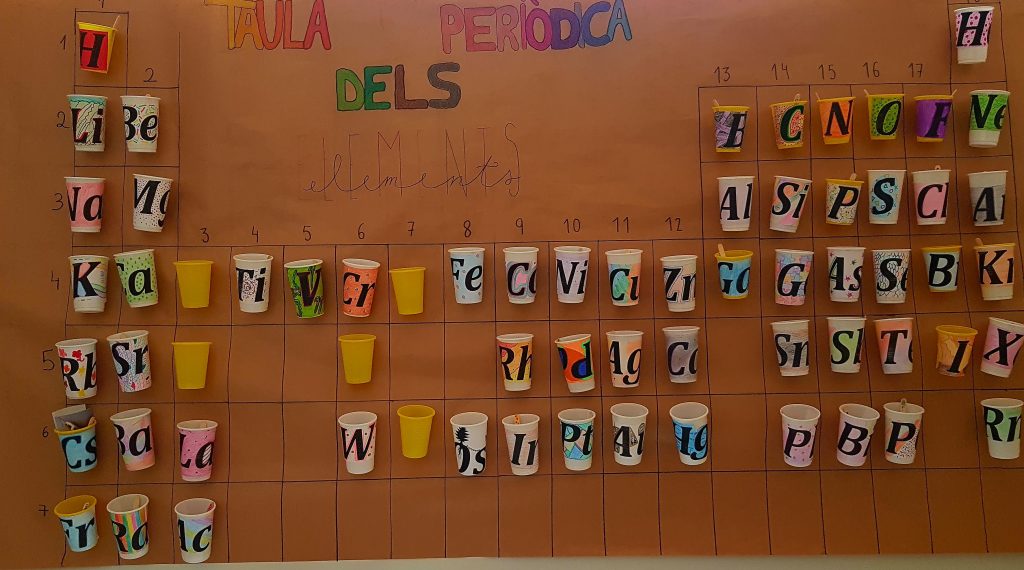 TAULA PERIÒDICA
DELS
ELEMENTS
elements
1 H H
2
13 14 15 16 17
2 Li Be B C N O F Ne
3 Na Mg Al Si P S Cl Ar
3 4 5 6 7 8 9 10 11 12
4 K Ca Ti V Cr Fe Co Ni Cu Zn Ga Ge As Se Br Kr
5 Rb Sr Rh Pd Ag Cd Sn Sb Te I X
6 Cs Ba La W Os Ir Pt Au Hg Pb Bi Po Rn
7 Fr Ra Ac